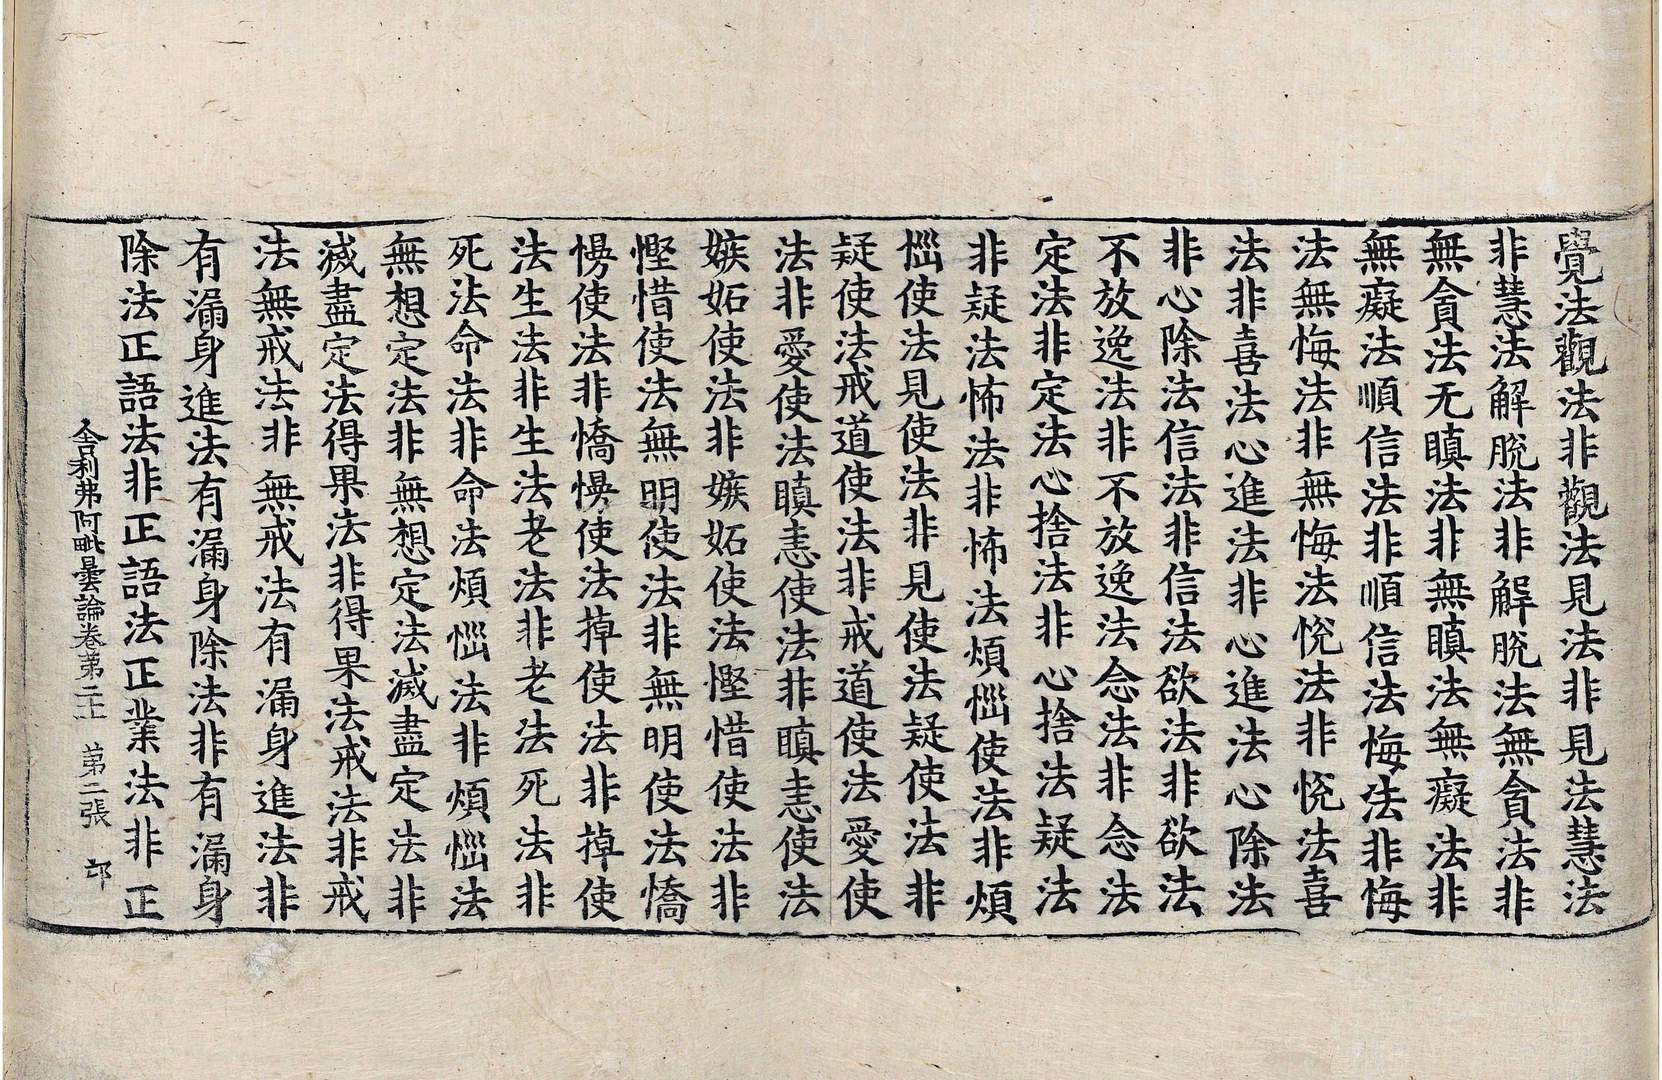 覺法觀法非觀法見法非見法慧法
非慧法解脫法非解脫法無貪法非
無貪法无瞋法非無瞋法無癡法非
無癡法順信法非順信法悔法非悔
法無悔法非無悔法悅法非悅法喜
法非喜法心進法非心進法心除法
非心除法信法非信法欲法非欲法
不放逸法非不放逸法念法非念法
定法非定法心捨法非心捨法疑法
非疑法怖法非怖法煩惱使法非煩
惱使法見使法非見使法疑使法非
疑使法戒道使法非戒道使法愛使
法非愛使法瞋恚使法非瞋恚使法
嫉妬使法非嫉妬使法慳惜使法非
慳惜使法無明使法非無明使法憍
慢使法非憍慢使法掉使法非掉使
法生法非生法老法非老法死法非
死法命法非命法煩惱法非煩惱法
無想定法非無想定法滅盡定法非
滅盡定法得果法非得果法戒法非戒
法無戒法非無戒法有漏身進法非
有漏身進法有漏身除法非有漏身
除法正語法非正語法正業法非正
舍利弗阿毗曇論卷第二十 第二張